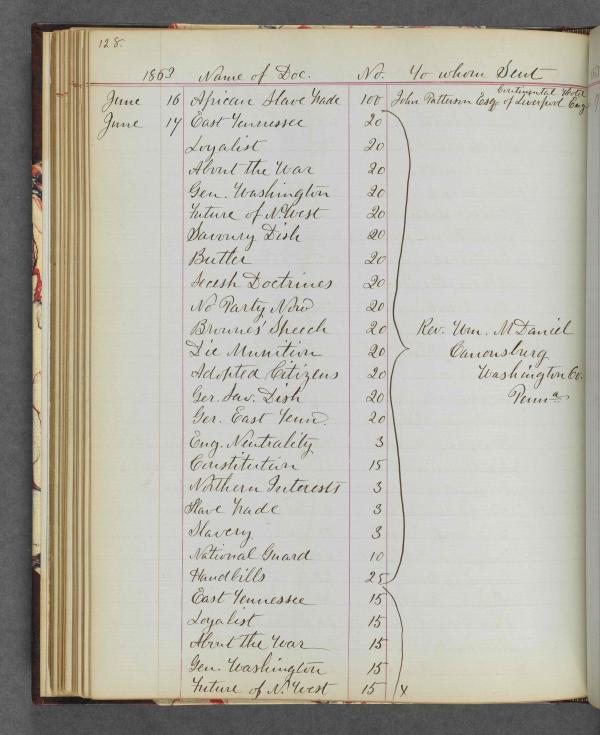 128.
1863 Name of Doc. No. To whom Sent
June 16 African Slave Trade 100 John Patterson Esq. of Liverpool Eng
Continental Hotel
June 17 East Tennessee 20
Loyalist 20
About the War 20
Gen. Washington 20
Future of N. West 20
Savoury Dish 20
Butler 20
Secesh Doctrines 20
No Party Now 20
Browne's Speech 20 Rev. Wm. McDaniel
Die Munition 20 Canonsburg
Adopted Citizens 20 Washington Co.
Ger. Sav. Dish 20 Penna
Ger. East Tenn. 20
Eng. Neutrality 3
Constitution 15
Northern Interests 3
Slave Trade 3
Slavery 3
National Guard 10
Handbills 25
East Tennessee 15
Loyalist 15
About the War 15
Gen. Washington 15
Future of N. West 15